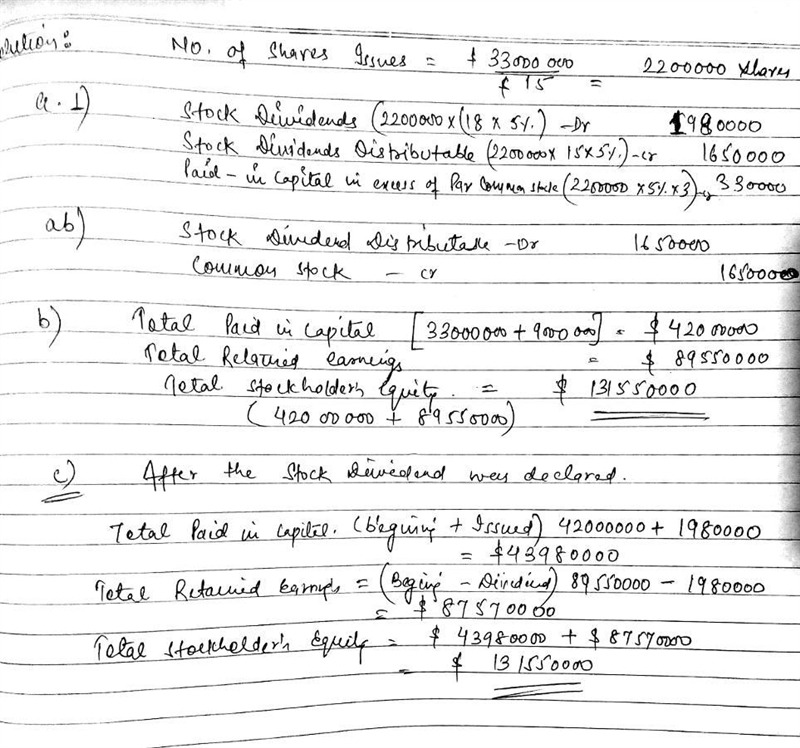 olution: No. of Shares Issues = $ 33000 000 / $ 15 = 2200000 Shares
a.1) Stock Dividends (2200000 x (18 x 5%.) - Dr 1980000
Stock Dividends Distributable (2200000 x 15 x 5%) - cr 1650000
Paid - in capital in excess of Par Common stock (2200000 x 5% x 3) - cr 330000
ab) Stock Dividend Distributable - Dr 1650000
Common Stock - cr 1650000
b) Total Paid in capital [33000000 + 9000000] = $ 42000000
Total Retained earnings = $ 89550000
Total Stockholder's Equity. = $ 131550000
(42000000 + 89550000)
c) After the Stock Dividend was declared.
Total Paid in capital. (Begining + Issued) 42000000 + 1980000
= $43980000
Total Retained Earnings = (Beging - Dividend) 89550000 - 1980000
= $ 87570000
Total Stockholder's Equity = $ 43980000 + $ 87570000
= $ 131550000